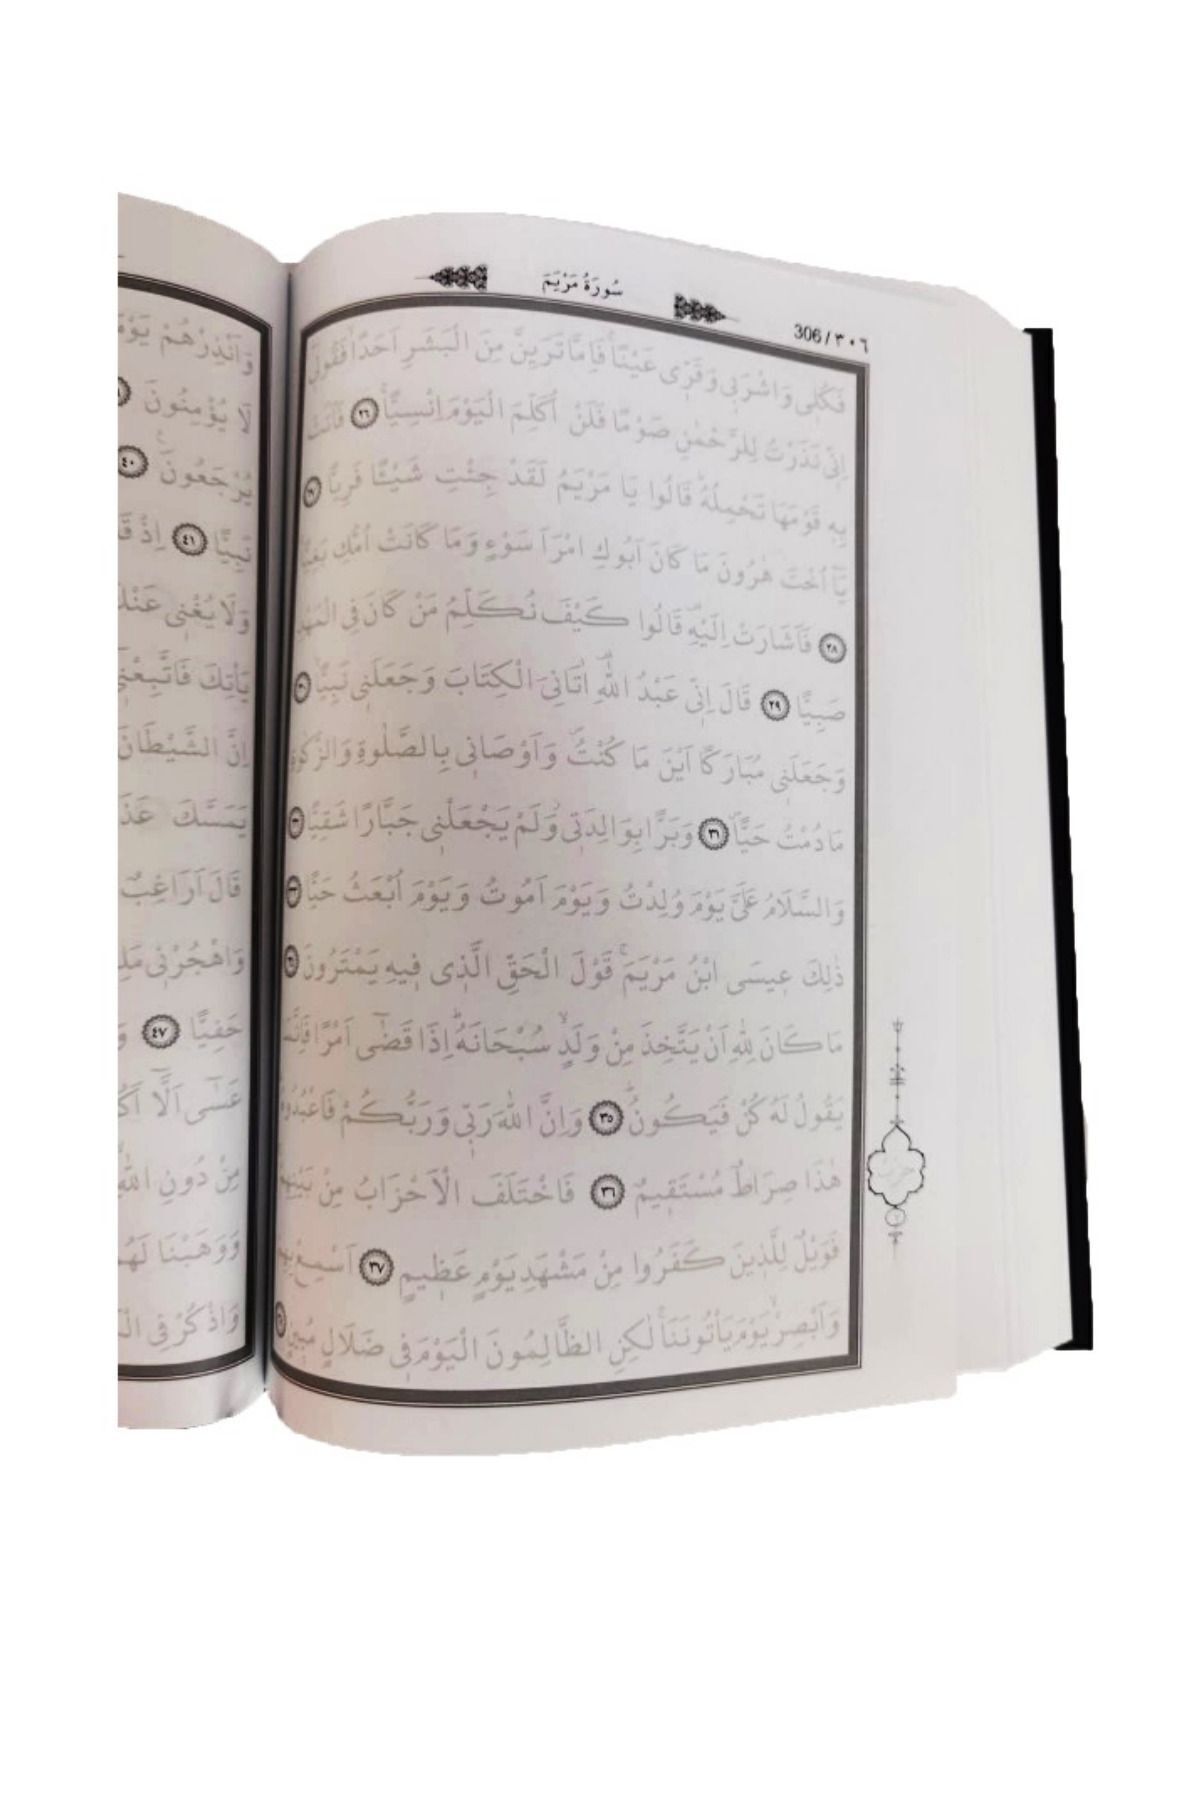 سُورَةُ مَرْيَمَ
306 / ٣٠٦
فَكُلٖي وَاشْرَبٖي وَقَرّٖي عَيْنًاۚ فَاِمَّا تَرَيِنَّ مِنَ الْبَشَرِ اَحَدًاۙ فَقُولٖٓي
اِنّٖي نَذَرْتُ لِلرَّحْمٰنِ صَوْمًا فَلَنْ اُكَلِّمَ الْيَوْمَ اِنْسِيًّاۚ ٢٦ فَاَتَتْ
بِهٖ قَوْمَهَا تَحْمِلُهُۜ قَالُوا يَا مَرْيَمُ لَقَدْ جِئْتِ شَيْـًٔا فَرِيًّا
يَٓا اُخْتَ هٰرُونَ مَا كَانَ اَبُوكِ امْرَاَ سَوْءٍ وَمَا كَانَتْ اُمُّكِ بَغِيًّا
٢٨ فَاَشَارَتْ اِلَيْهِۜ قَالُوا كَيْفَ نُكَلِّمُ مَنْ كَانَ فِي الْمَهْدِ
صَبِيًّا ٢٩ قَالَ اِنّٖي عَبْدُ اللّٰهِۜ اٰتَانِيَ الْكِتَابَ وَجَعَلَنٖي نَبِيًّاۙ
وَجَعَلَنٖي مُبَارَكًا اَيْنَ مَا كُنْتُۖ وَاَوْصَانٖي بِالصَّلٰوةِ وَالزَّكٰوةِ
مَا دُمْتُ حَيًّاۙ ٣١ وَبَرًّا بِوَالِدَتٖيۘ وَلَمْ يَجْعَلْنٖي جَبَّارًا شَقِيًّا
وَالسَّلَامُ عَلَيَّ يَوْمَ وُلِدْتُ وَيَوْمَ اَمُوتُ وَيَوْمَ اُبْعَثُ حَيًّا
ذٰلِكَ عٖيسَى ابْنُ مَرْيَمَۚ قَوْلَ الْحَقِّ الَّذٖي فٖيهِ يَمْتَرُونَ
مَا كَانَ لِلّٰهِ اَنْ يَتَّخِذَ مِنْ وَلَدٍۙ سُبْحَانَهُۜ اِذَا قَضٰٓى اَمْرًا فَاِنَّمَا
يَقُولُ لَهُ كُنْ فَيَكُونُۜ ٣٥ وَاِنَّ اللّٰهَ رَبّٖي وَرَبُّكُمْ فَاعْبُدُوهُۜ
هٰذَا صِرَاطٌ مُسْتَقٖيمٌ ٣٦ فَاخْتَلَفَ الْاَحْزَابُ مِنْ بَيْنِهِمْۚ
فَوَيْلٌ لِلَّذٖينَ كَفَرُوا مِنْ مَشْهَدِ يَوْمٍ عَظٖيمٍ ٣٧ اَسْمِعْ بِهِمْ
وَاَبْصِرْۙ يَوْمَ يَأْتُونَنَا لٰكِنِ الظَّالِمُونَ الْيَوْمَ فٖي ضَلَالٍ مُبٖينٍ
وَاَنْذِرْهُمْ يَوْمَ
لَا يُؤْمِنُونَ
يُرْجَعُونَ ٤٠
نَبِيًّا ٤١ اِذْ قَا
وَلَا يُغْنٖي عَنْكَ
يَأْتِكَ فَاتَّبِعْنٖٓي
اِنَّ الشَّيْطَانَ
يَمَسَّكَ عَذَا
قَالَ اَرَاغِبٌ
وَاهْجُرْنٖي مَلِ
حَفِيًّا ٤٧ وَ
عَسٰٓى اَلَّٓا اَكُ
مِنْ دُونِ اللّٰهِ
وَوَهَبْنَا لَهُمْ
وَاذْكُرْ فِي الْ